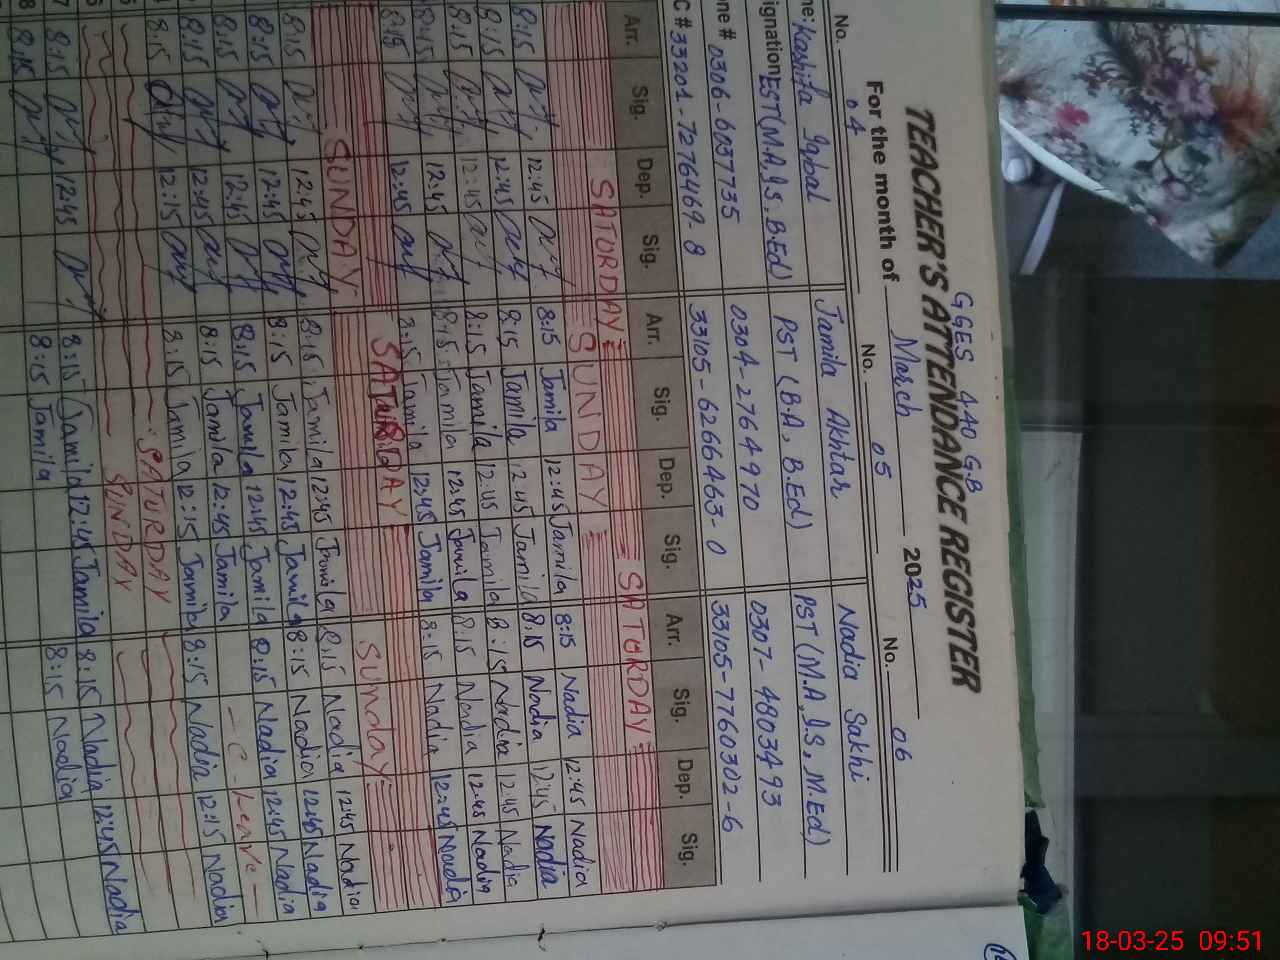 GGES 440 G.B
TEACHER'S ATTENDANCE REGISTER
For the month of March 2025
No. 04 No. 05 No. 06
Kashifa Iqbal Jamila Akhtar Nadia Sakhi
EST(M.A, B.Ed) PST (B.A, B.Ed) PST (M.A, I.S, M.Ed)
0304-2764970 0307-4803493
C # 33201-7276469-8 33105-6266463-0 33105-7760302-6
Arr. Sig. Dep. Sig. Arr. Sig. Dep. Sig. Arr. Sig. Dep. Sig.
SATURDAY SATURDAY
SUNDAY
8:15 12:45 8:15 Jamila 12:45 Jamila 8:15 Nadia 12:45 Nadia
8:15 12:45 8:15 Jamila 12:45 Jamila 8:15 Nadia 12:45 Nadia
8:15 12:45 8:15 Jamila 12:45 Jamila 8:15 Nadia 12:45 Nadia
8:15 12:45 8:15 Jamila 12:45 Jamila 8:15 Nadia 12:45 Nadia
8:15 12:45 8:15 Jamila 12:45 Jamila 8:15 Nadia 12:45 Nadia
SATURDAY
SUNDAY Sunday
8:15 12:45 8:15 Jamila 12:45 Jamila 8:15 Nadia 12:45 Nadia
8:15 12:45 8:15 Jamila 12:45 Jamila 8:15 Nadia 12:45 Nadia
8:15 12:45 8:15 Jamila 12:45 Jamila 8:15 Nadia 12:45 Nadia
8:15 12:45 8:15 Jamila 12:45 Jamila - C - Leave -
8:15 12:15 8:15 Jamila 12:15 Jamila 8:15 Nadia 12:15 Nadia
SATURDAY
SUNDAY
7 8:15 12:45 8:15 Jamila 12:45 Jamila 8:15 Nadia 12:45 Nadia
8 8:15 8:15 Jamila 8:15 Nadia
18-03-25 09:51